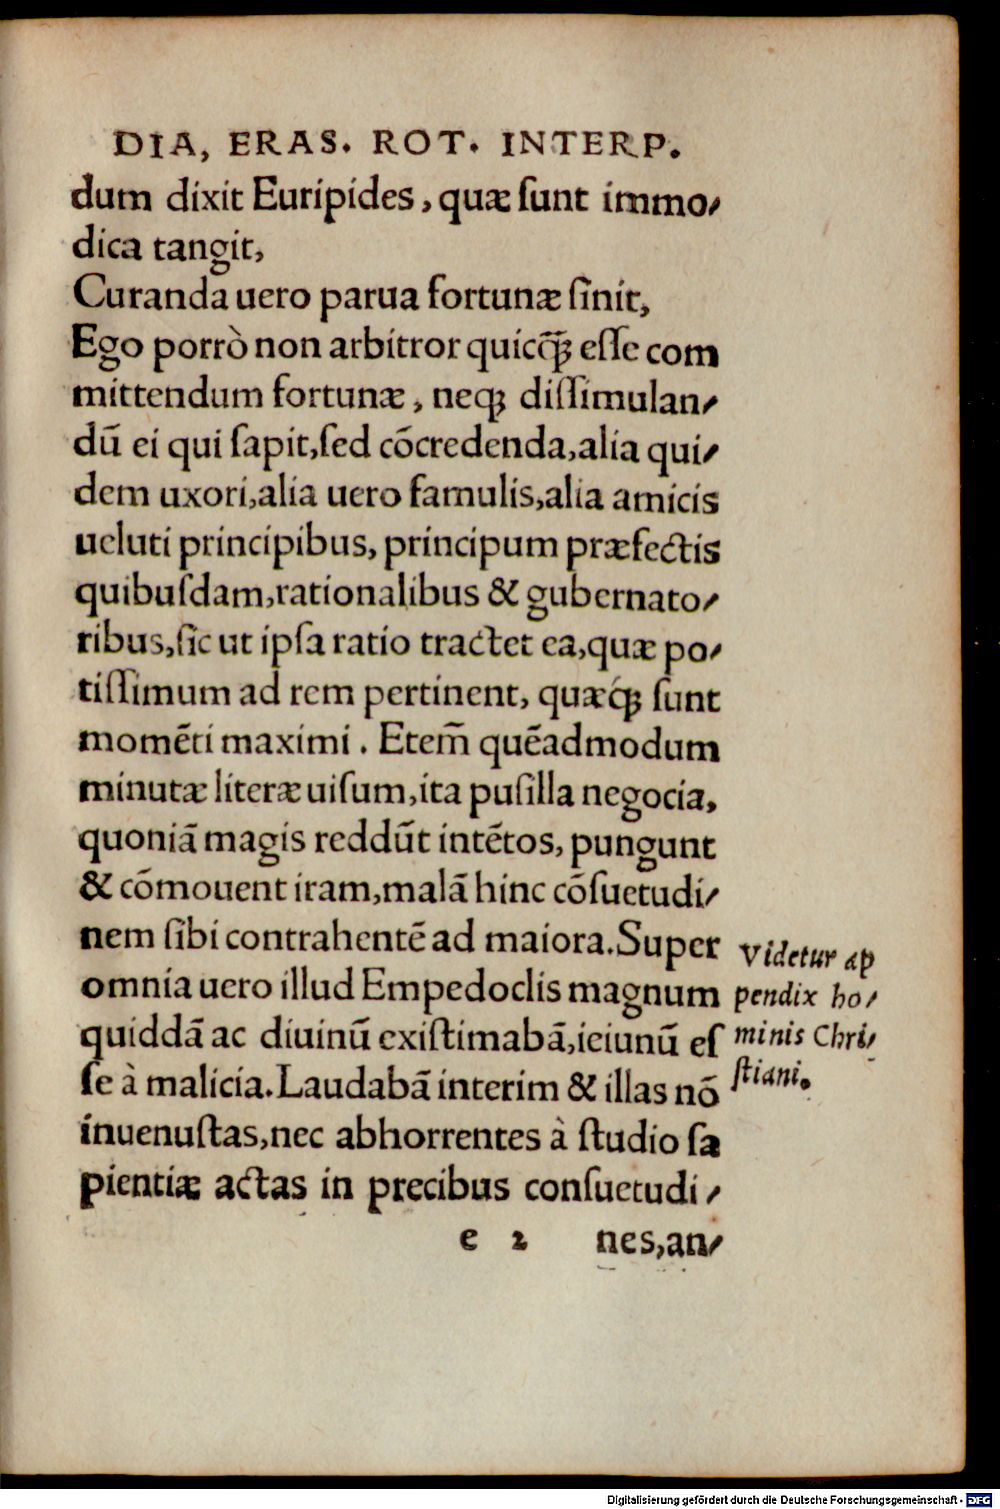 DIA, ERAS. ROT. INTERP.
dum dixit Euripides, quæ ſunt immo⸗
dica tangit,
Curanda uero parua fortunæ ſinit,
Ego porrò non arbitror quicꝗ̃ eſſe com
mittendum fortunæ, neqꝫ diſſimulan⸗
dū ei qui ſapit,ſed cōcredenda,alia qui⸗
dem uxori,alia uero famulis,alia amicis
ueluti principibus, principum præfectis
quibuſdam,rationalibus & gubernato⸗
ribus,ſic ut ipſa ratio tractet ea,quæ po⸗
tiſſimum ad rem pertinent, quæqꝫ́ ſunt
momēti maximi. Etem̃ quēadmodum
minutæ literæ uiſum,ita puſilla negocia,
quoniā magis reddūt intētos, pungunt
& cōmouent iram,malā hinc cōſuetudi⸗
nem ſibi contrahentē ad maiora.Super
omnia uero illud Empedoclis magnum
quiddā ac diuinū exiſtimabā,ieiunū eſ
ſe à malicia.Laudabā interim & illas nō
inuenuſtas,nec abhorrentes à ſtudio ſa
pientiæ actas in precibus conſuetudi⸗
e 2 nes,an⸗
Videtur ap
pendix ho⸗
minis Chri⸗
ſtiani.
Digitalisierung gefördert durch die Deutsche Forschungsgemeinschaft - DFG